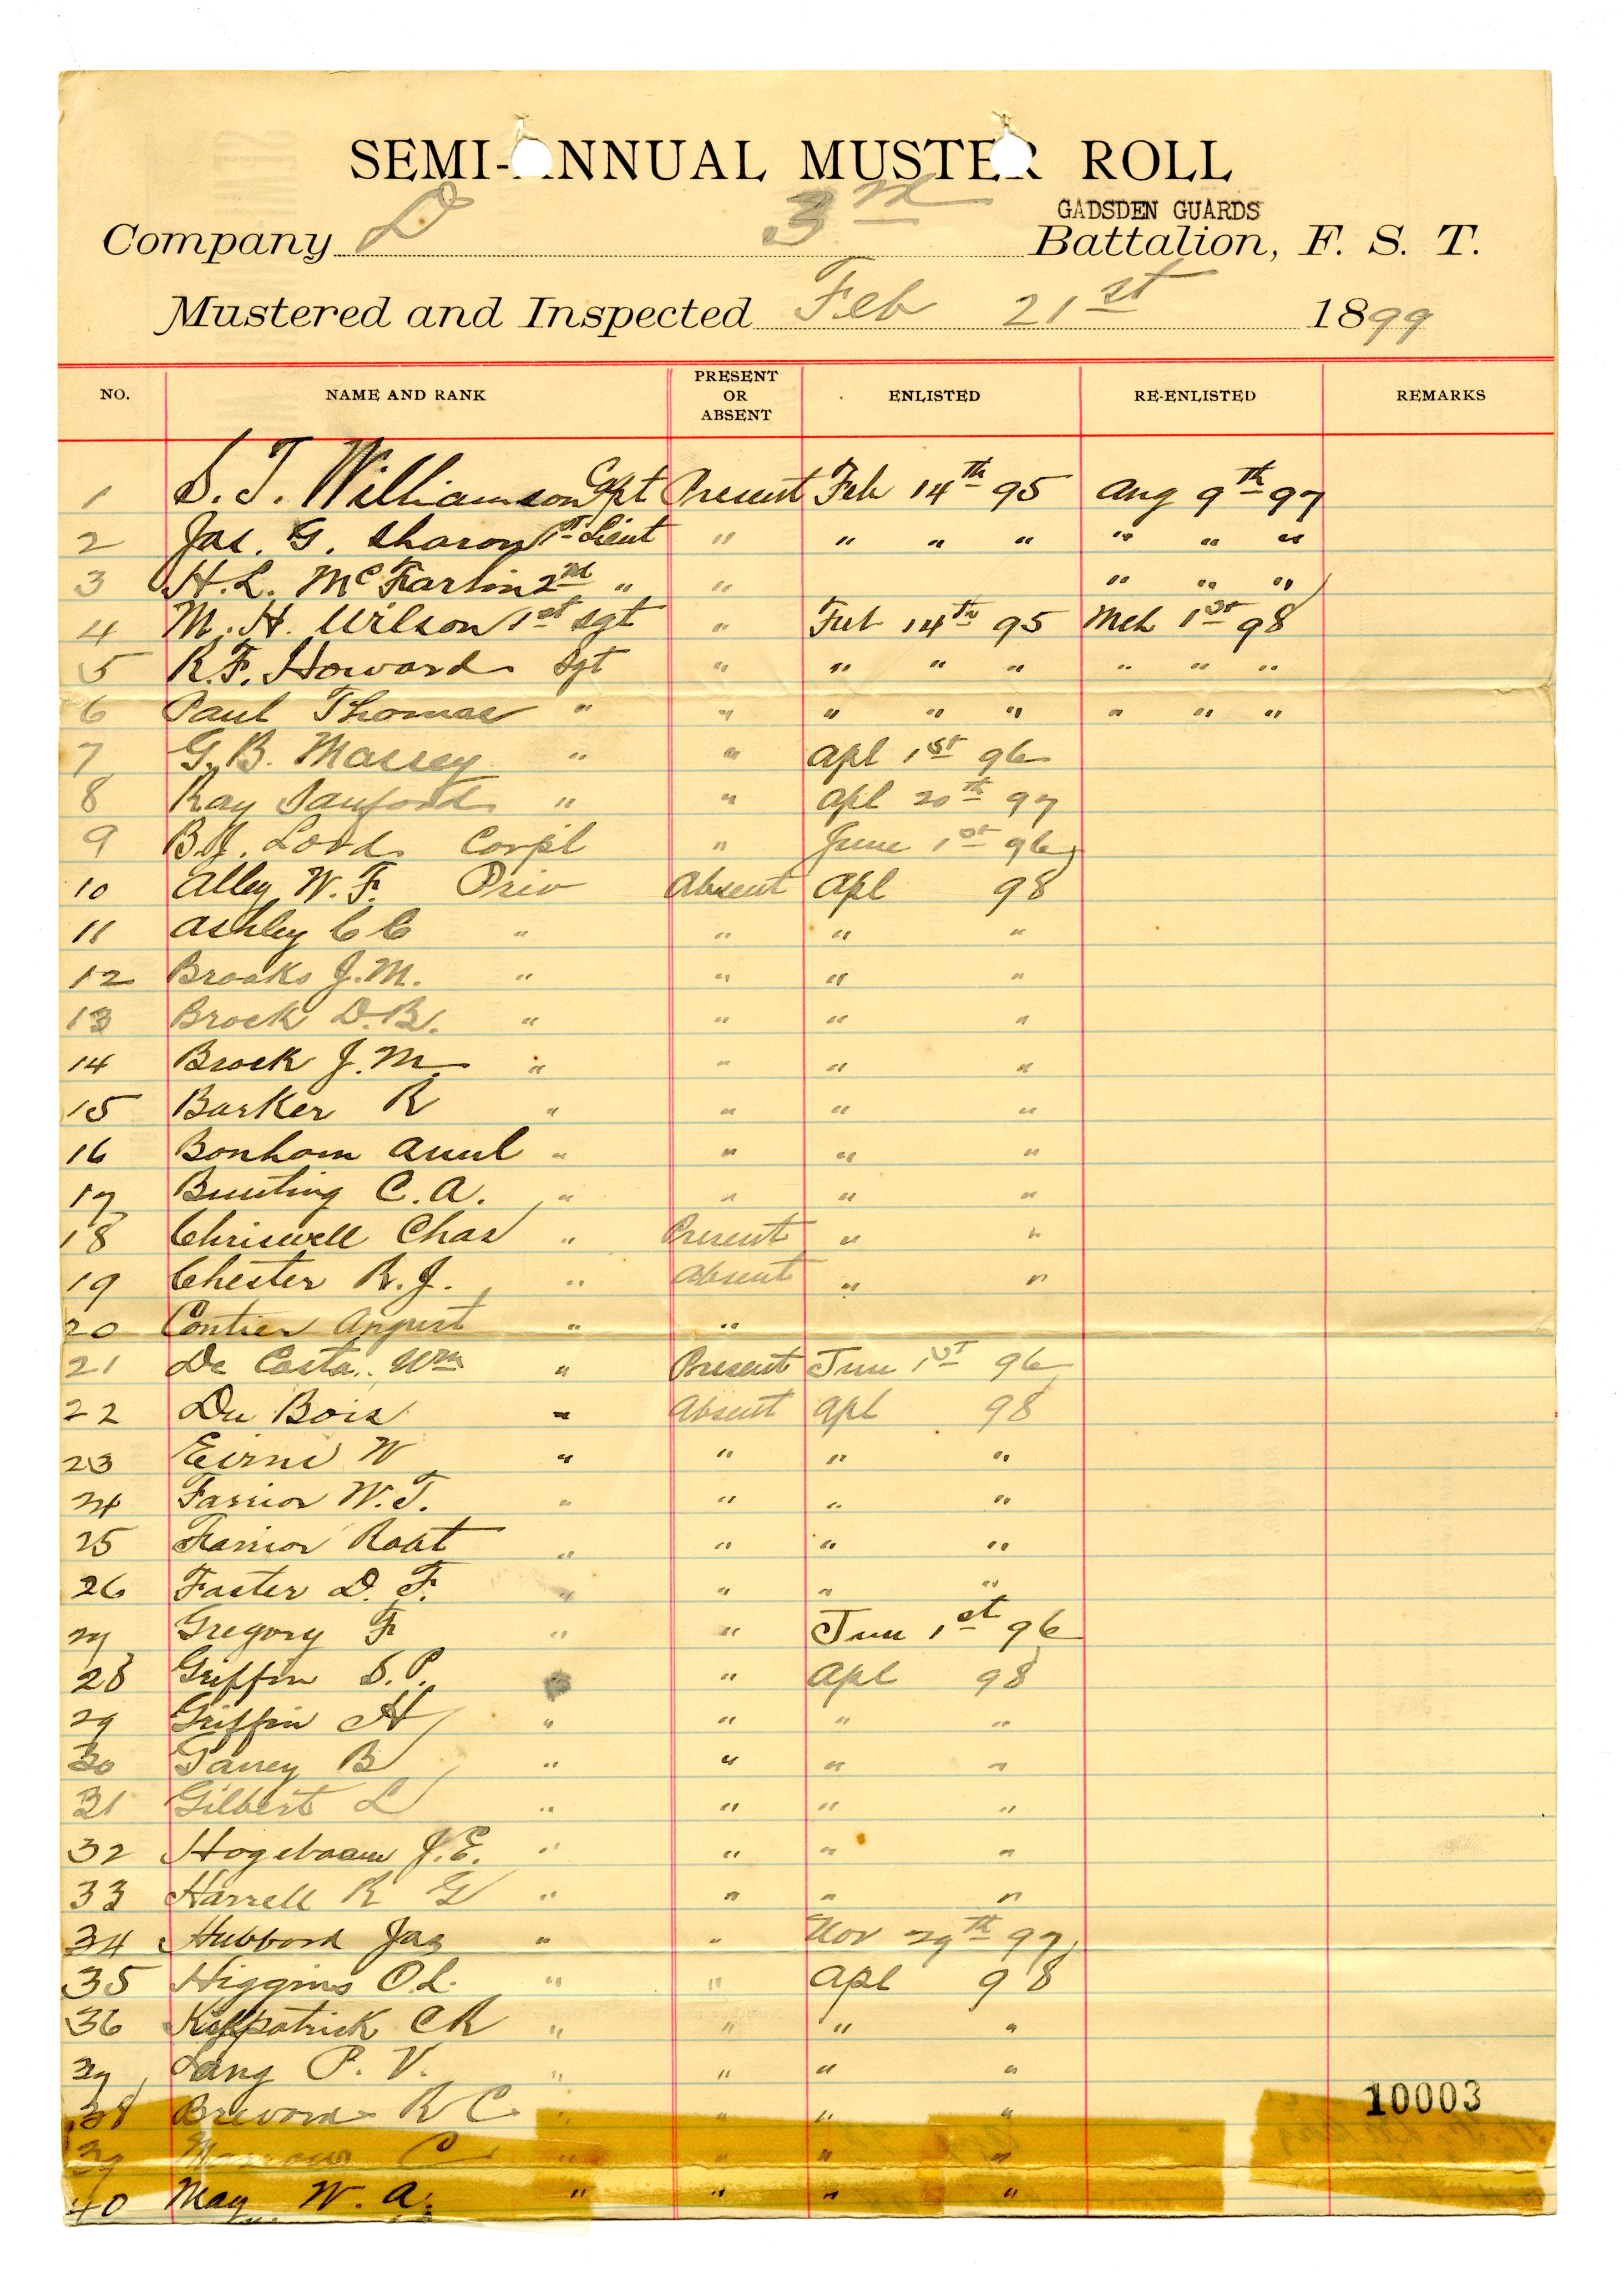 SEMI-ANNUAL MUSTER ROLL
GADSDEN GUARDS
Company D 3rd Battalion, F. S. T.
Mustered and Inspected Feb 21st 1899
NO. NAME AND RANK PRESENT OR ABSENT ENLISTED RE-ENLISTED REMARKS
1 S. T. Williamson Capt Present Feb 14th 95 Aug 9th 97
2 Jas. G. Sharon 1st Lieut " " " " " " "
3 H. L. McFarlin 2nd " " " " "
4 M. H. Wilson 1st Sgt " Feb 14th 95 Mch 1st 98
5 R. F. Howard Sgt " " " " " " "
6 Paul Thomas " " " " " " " "
7 G. B. Massey " " Apl 1st 96
8 Ray Sanford " " Apl 20th 97
9 Lord Corpl " June 1st 96
10 Alley W. F. Priv Absent Apl 98
11 Ashley C C " " " "
12 Brooks J. M. " " " "
13 Brock D. B. " " " "
14 Brock J. M. " " " "
15 Barker R " " " "
16 Bonham " " " "
17 Bunting C. A. " " " "
18 Chriswell Chas " Present " "
19 Chester R. J. " Absent " "
20 Contier August " "
21 De Costa Wm " Present Jun 1st 96
22 Du Bois " Absent Apl 98
23 W " " " "
24 Farrior W. T. " " " "
25 Farrior Robt " " " "
26 Foster D. F. " " " "
27 Gregory F " " Jun 1st 96
28 Griffin S. P. " Apl 98
29 Griffin H " " " "
30 B " " " "
31 Gilbert L " " " "
32 Hogeboom J. E. " " " "
33 Harrell R G " " " "
34 Hubbord Jas " " Nov 29th 97
35 Higgins O. L. " " Apl 98
36 Kilpatrick C R " " " "
37 Lang P. V. " " " "
38 Brevord R C " " " "
10003
39 C " " "
40 May W. A. " " " "